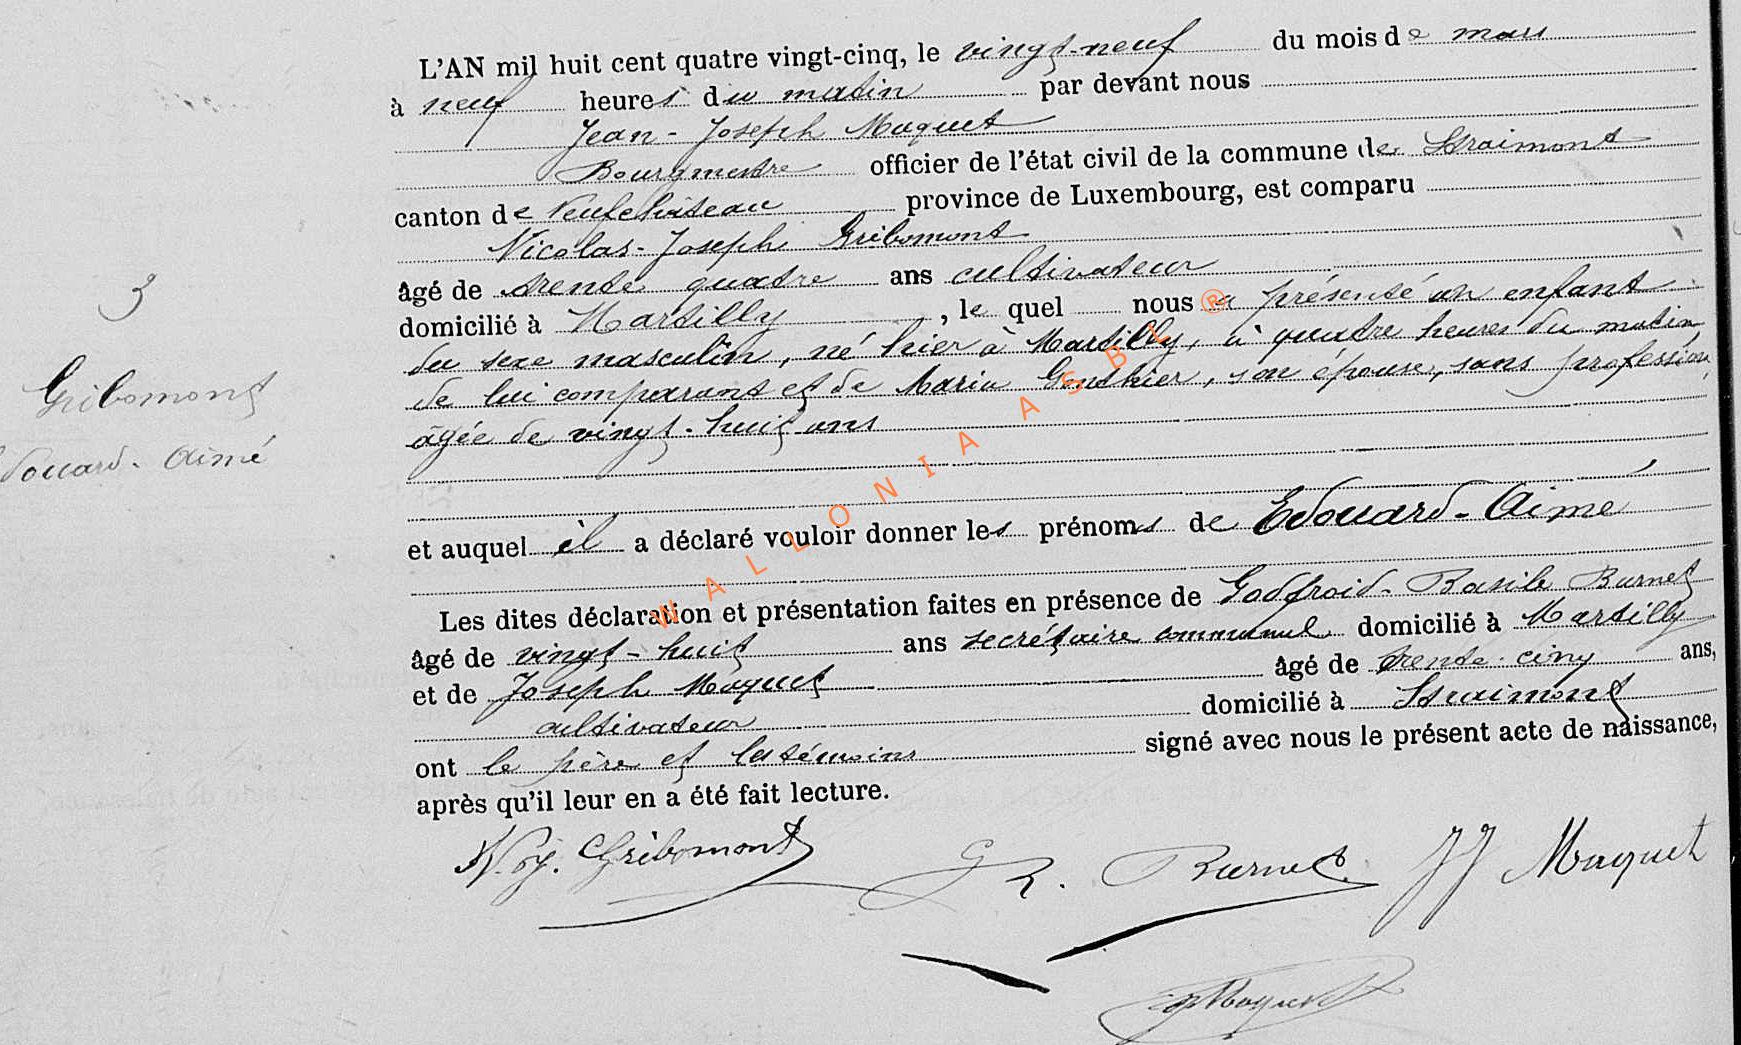 L'AN mil huit cent quatre vingt-cinq, le vingt-neuf du mois de mars
à neuf heures du matin par devant nous
Jean-Joseph Maquet
Bourgmestre officier de l'état civil de la commune de Straimont
canton de Neufchâteau province de Luxembourg, est comparu
Nicolas-Joseph Gribomont
âgé de trente quatre ans cultivateur
domicilié à Martilly, le quel nous a présenté un enfant
du sexe masculin, né hier à Martilly, à quatre heures du matin,
de lui comparant et de Maria Gonthier, son épouse, sans profession,
âgée de vingt-huit ans
et auquel il a déclaré vouloir donner les prénoms de Edouard-Aimé
Les dites déclaration et présentation faites en présence de Godfroid-Basile Burnet
âgé de vingt-huit ans secrétaire communal domicilié à Martilly
et de Joseph Maquet âgé de trente-cinq ans,
cultivateur domicilié à Straimont
ont le père et les témoins signé avec nous le présent acte de naissance,
après qu'il leur en a été fait lecture.
N. J. Gribomont G B. Burnet JJ Maquet
Maquet
3
Gribomont
douard-Aimé
WALLONIA ASBL ®